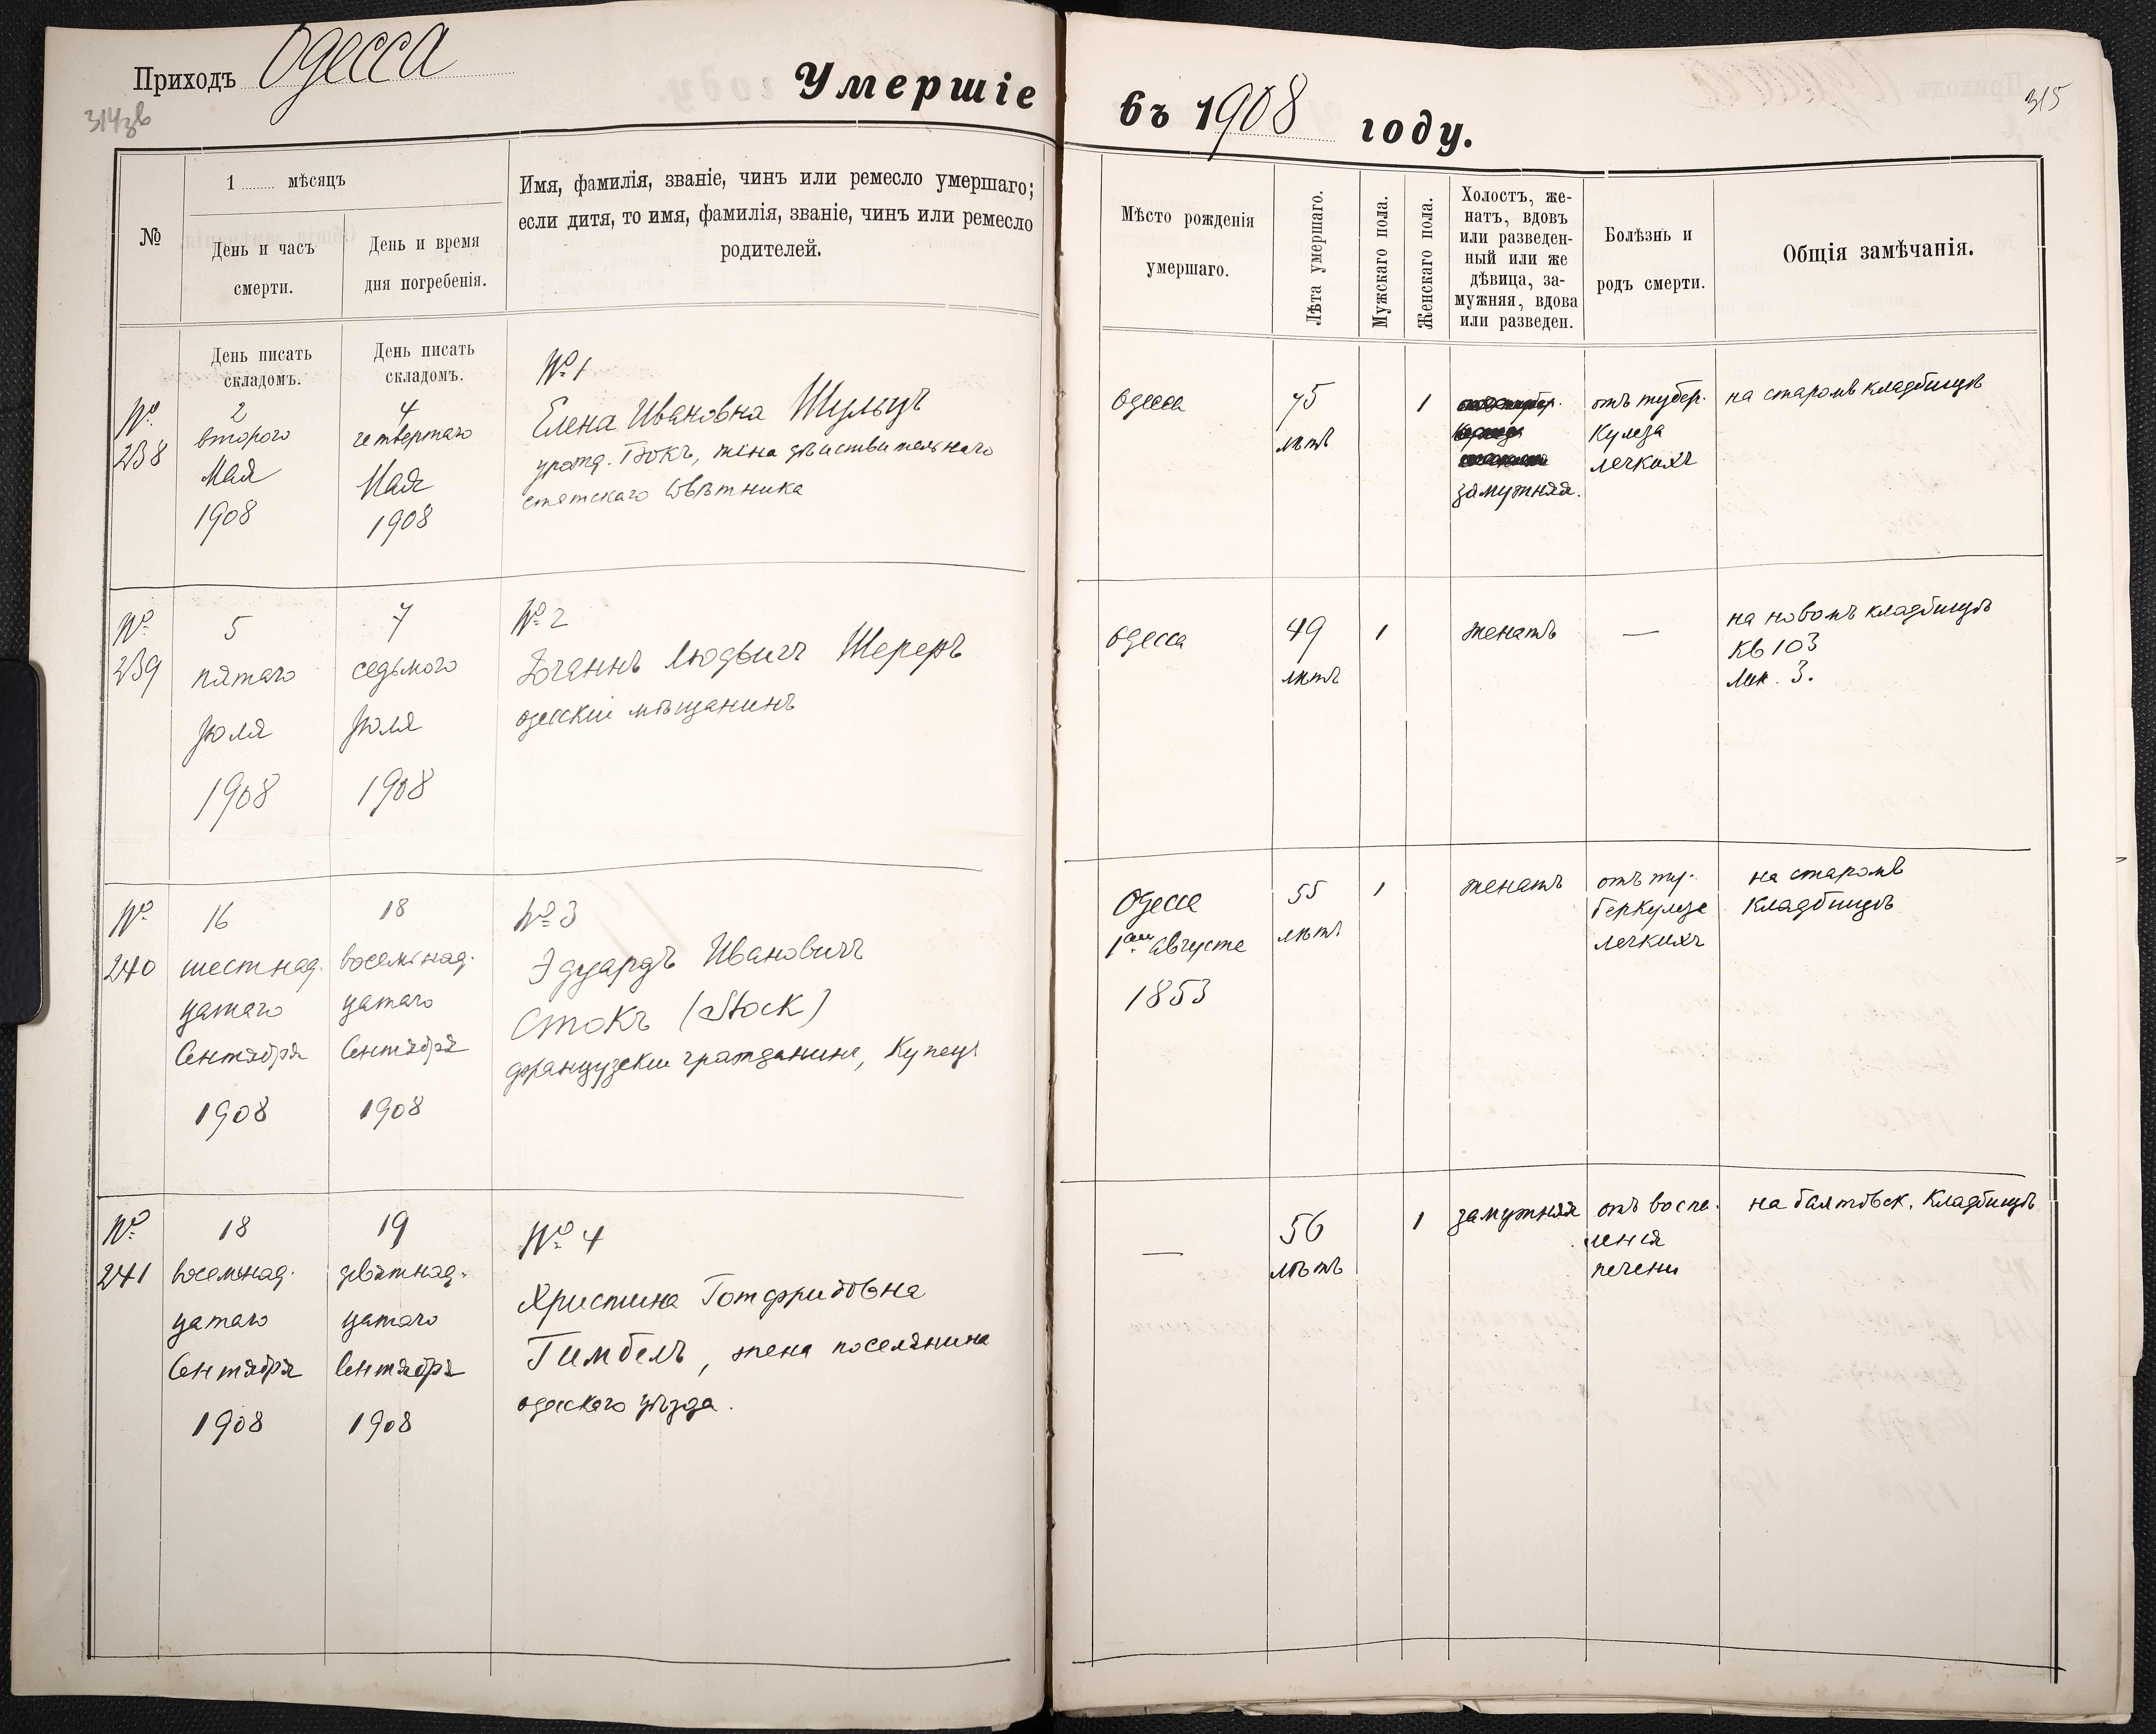 Приходъ Одесса
Умершіе
314зв
№
1 ...... мѣсяцъ
День и часъ
смерти.
День и время
дня погребенія.
Имя, фамилія, званіе, чинъ или ремесло умершаго;
если дитя, то имя, фамилія, званіе, чинъ или ремесло
родителей.
День писать
складомъ.
День писать
складомъ.
№
238
2
второго
Мая
1908
4
четвертаго
Мая
1908
№ 1
Елена Ивановна Шульцъ
урожд. Бокъ, жена дѣйствительнаго
статскаго Совѣтника
№
239
5
пятаго
Юля
1908
7
седьмого
Юля
1908
№ 2
Іоганнъ Людвигъ Шереръ
одесскій мѣщанинъ
№
240
16
шестнад.
цатаго
Сентября
1908
18
восемьнад.
цатаго
Сентября
1908
№ 3
Эдуардъ Ивановичъ
Стокъ (Stock)
французскій гражданинъ, Купецъ
№
241
18
восемьнад.
цатаго
Сентября
1908
19
девятнад.
цатаго
Сентября
1908
№ 4
Христина Готфридовна
Гимбель, жена поселянина
одесскаго уѣзда.
въ 1908 году.
315
Мѣсто рожденія
умершаго.
Лѣта умершаго.
Мужскаго пола.
Женскаго пола.
Холостъ, же-
натъ, вдовъ
или разведен-
ный или же
дѣвица, за-
мужняя, вдова
или разведен.
Болѣзнь и
родъ смерти.
Общія замѣчанія.
Одесса
75
лѣтъ
1
замужняя.
отъ тубер.
кулеза
легкихъ
на старомъ кладбищѣ
Одесса
49
лѣтъ
1
женатъ
—
на новомъ кладбищѣ
Кв 103
Лин. 3.
Одесса
1го Августа
1853
55
лѣтъ
1
женатъ
отъ ту.
беркулеза
легкихъ
на старомъ
Кладбищѣ
—
56
лѣтъ
1
замужняя
отъ воспа.
ленія
печени
на балтовск. Кладбищѣ